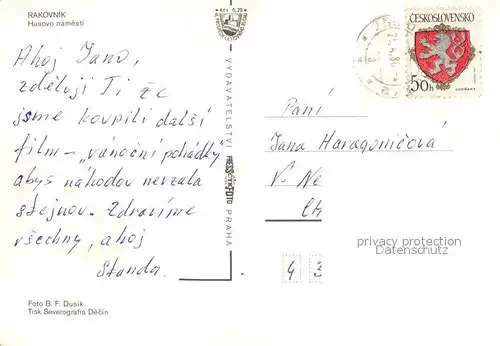 RAKOVNÍK
Husovo náměstí
Ahoj Jano,
zděluji Ti že
jsme koupili další
film - "vánoční pohádky"
abys náhodou nevzala
stejnou. Zdravíme
všechny, ahoj
Standa.
Foto B. F. Dusík
Tisk Severografia Děčín
VYDAVATELSTVÍ PRESSFOTO PRAHA
Kčs 0,20
ČESKOSLOVENSKO
50h
Paní
Jana
V. Ne
Ch
43
privacy protection
Datenschutz